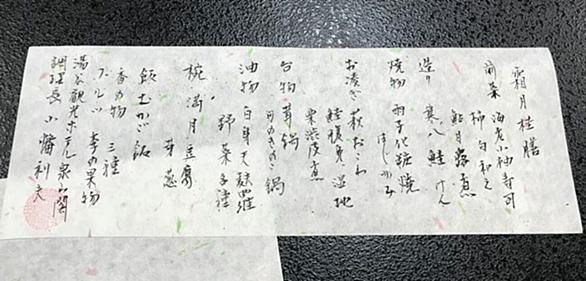 霜月 桂膳
前菜 海老小袖寿司
柿白和え
鮎甘露煮
造り 寒八 鮭 けん
焼物 羽子化粧焼
はじかみ
お凌ぎ 秋おこわ
鮭腹身 湿地
栗渋皮煮
台物 茸鍋
油物 白身天麩羅
野菜多種
椀 満月豆腐
芽葱
飯 むかご飯
香の物 三種
フルーツ 季の果物
湯谷観光ホテル泉山閣
調理長 小幡利夫